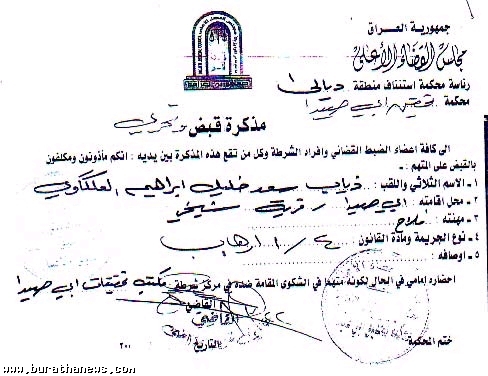 جمهورية العراق
مجلس القضاء الأعلى
رئاسة محكمة استئناف منطقة . ديالى
محكمة . تحقيق ابي صيدا
مذكرة قبض وتحري
الى كافة اعضاء الضبط القضائي وافراد الشرطة وكل من تقع هذه المذكرة بين يديه : انكم مأذونون ومكلفون
بالقبض على المتهم .
١ - الاسم الثلاثي واللقب : ذياب سعد خليل ابراهيم
٢ - محل اقامته : ابي صيدا / قرية شيخي
٣ - مهنته : فلاح
٤ - نوع الجريمة ومادة القانون : ٤ / ١ ارهاب
٥ - اوصافه :
احضاره امامي في الحال لكونه متهم في الشكوى المقامة ضده في مركز شرطة . مكتب تحقيقات ابي صيدا
القاضي
التاريخ
٢٠٠
ختم المحكمة
www.burathanews.com